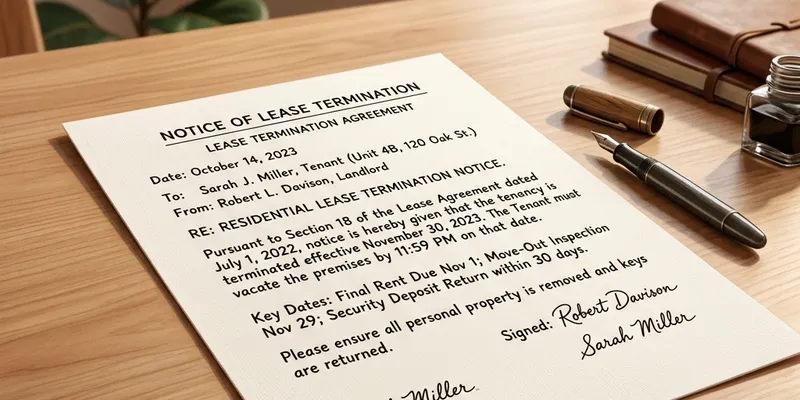 NOTICE OF LEASE TERMINATION
LEASE TERMINATION AGREEMENT
Date: October 14, 2023
To: Sarah J. Miller, Tenant (Unit 4B, 120 Oak St.)
From: Robert L. Davison, Landlord
RE: RESIDENTIAL LEASE TERMINATION NOTICE.
Pursuant to Section 18 of the Lease Agreement dated
July 1, 2022, notice is hereby given that the tenancy is
terminated effective November 30, 2023. The Tenant must
vacate the premises by 11:59 PM on that date.
Key Dates: Final Rent Due Nov 1; Move-Out Inspection
Nov 29; Security Deposit Return within 30 days.
Please ensure all personal property is removed and keys
are returned.
Signed: Robert Davison
Sarah Miller
Miller